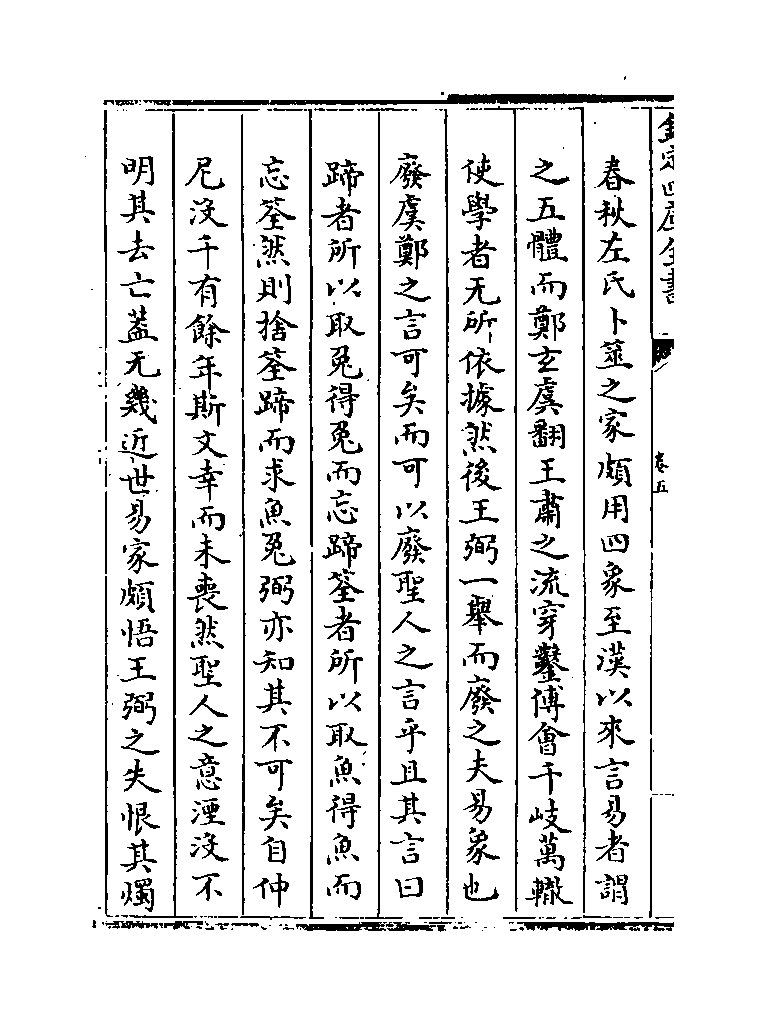 欽定四庫全書
卷五
春秋左氏卜筮之家頗用四象至漢以來言易者謂
之五體而鄭玄虞翻王肅之流穿鑿傅會千岐萬轍
使學者无所依據然後王弼一舉而廢之夫易象也
廢虞鄭之言可矣而可以廢聖人之言乎且其言曰
蹄者所以取兔得兔而忘蹄筌者所以取魚得魚而
忘筌然則捨筌蹄而求魚兔弼亦知其不可矣自仲
尼沒千有餘年斯文幸而未喪然聖人之意湮沒不
明其去亡蓋无幾近世易家頗悟王弼之失恨其燭